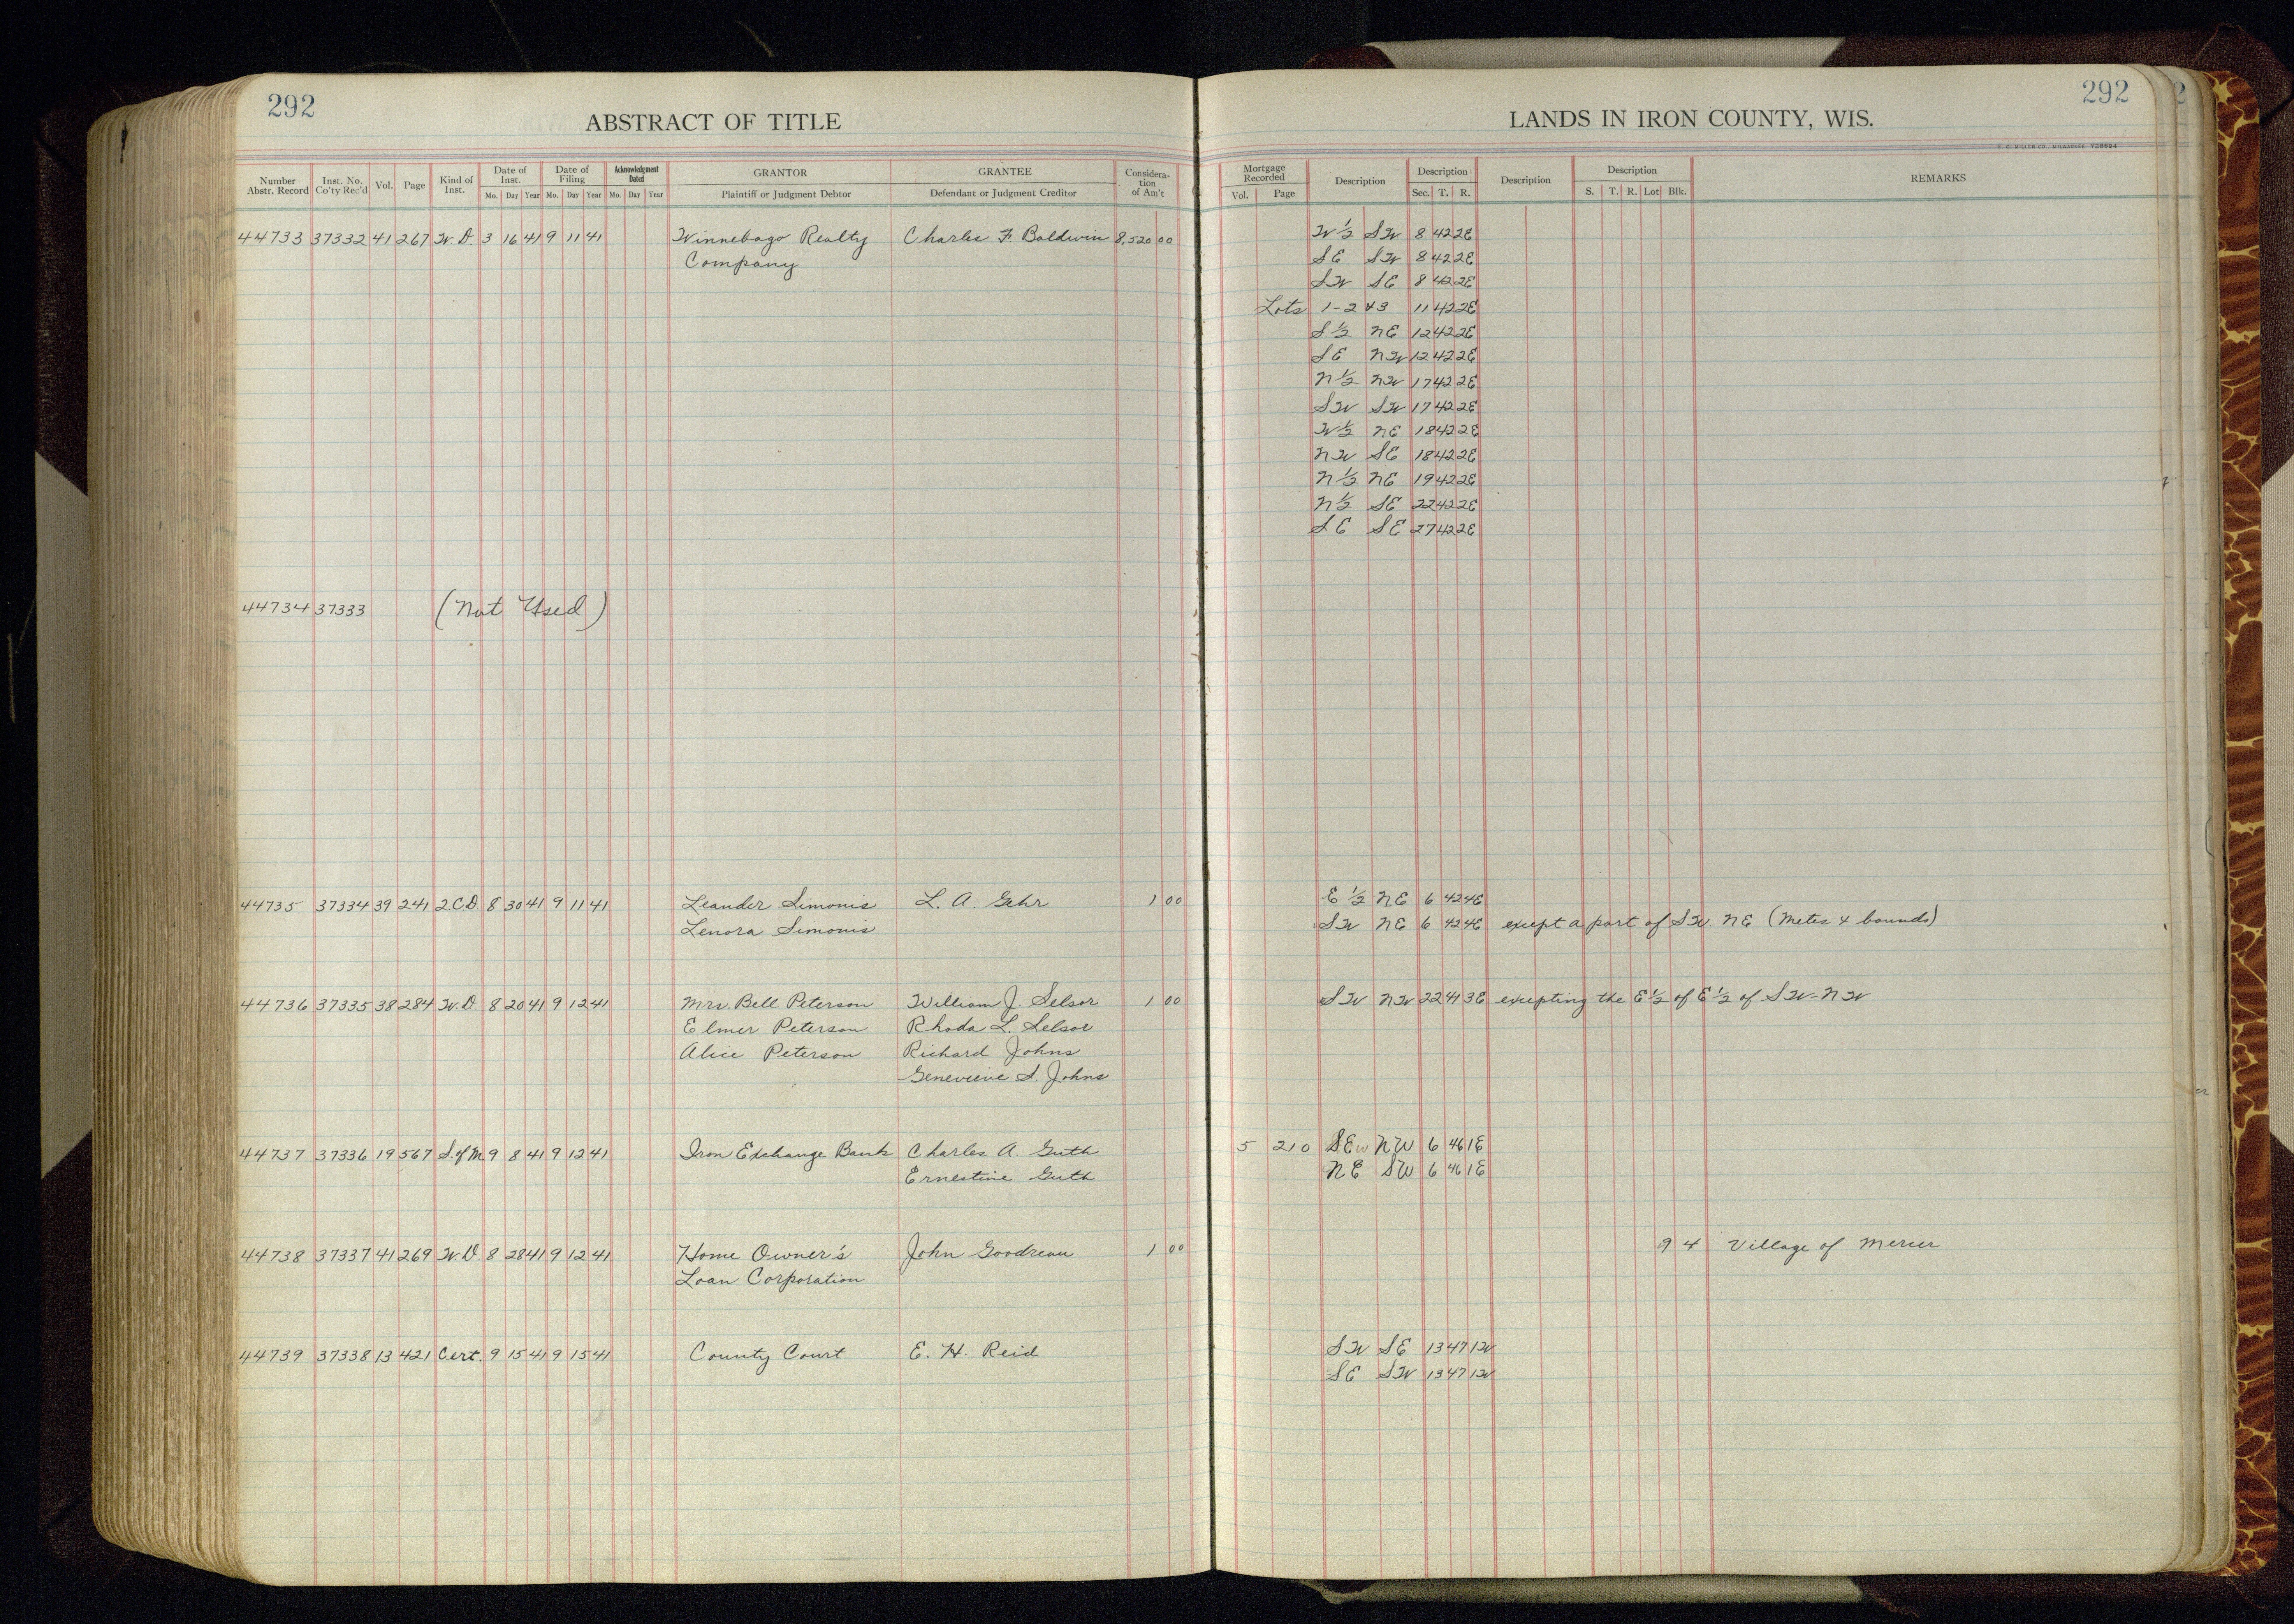 292
ABSTRACT OF TITLE
Number Abstr. Record | Inst. No. Co'ty Rec'd | Vol. | Page | Kind of Inst. | Date of Inst. Mo. Day Year | Date of Filing Mo. Day Year | Acknowledgment Dated Mo. Day Year | GRANTOR Plaintiff or Judgment Debtor | GRANTEE Defendant or Judgment Creditor | Considera-tion of Am't
44733 37332 41 267 W.D. 3 16 41 9 11 41 Winnebago Realty Charles F. Baldwin 8,520 00
Company
44734 37333 (Not Used)
44735 37334 39 241 2.C.D 8 30 41 9 11 41 Leander Simonis L. A. Gehr 1 00
Lenora Simonis
44736 37335 38 284 W.D. 8 20 41 9 12 41 Mrs. Bell Peterson William J. Selsor 1 00
Elmer Peterson Rhoda L. Selsor
Alice Peterson Richard Johns
Genevieve S. Johns
44737 37336 19 567 S. of M. 9 8 41 9 12 41 Iron Exchange Bank Charles A. Guth
Ernestine Guth
44738 37337 41 269 W.D. 8 28 41 9 12 41 Home Owner's John Goodreau 1 00
Loan Corporation
44739 37338 13 421 Cert. 9 15 41 9 15 41 County Court E. H. Reid
292
LANDS IN IRON COUNTY, WIS.
Mortgage Recorded Vol. Page | Description | Description Sec. T. R. | Description | Description S. T. R. Lot Blk. | REMARKS
W 1/2 SW 8 42 2E
SE SW 8 42 2E
SW SE 8 42 2E
Lots 1-2 & 3 11 42 2E
S 1/2 NE 12 42 2E
SE NW 12 42 2E
N 1/2 NW 17 42 2E
SW SW 17 42 2E
W 1/2 NE 18 42 2E
NW SE 18 42 2E
N 1/2 NE 19 42 2E
N 1/2 SE 22 42 2E
SE SE 27 42 2E
E 1/2 NE 6 42 4E
SW NE 6 42 4E except a part of SW NE (Metes & bounds)
SW NW 22 41 3E excepting the E 1/2 of E 1/2 of SW-NW
5 210 SE NW 6 46 1E
NE SW 6 46 1E
9 4 Village of Mercer
SW SE 13 47 1W
SE SW 13 47 1W